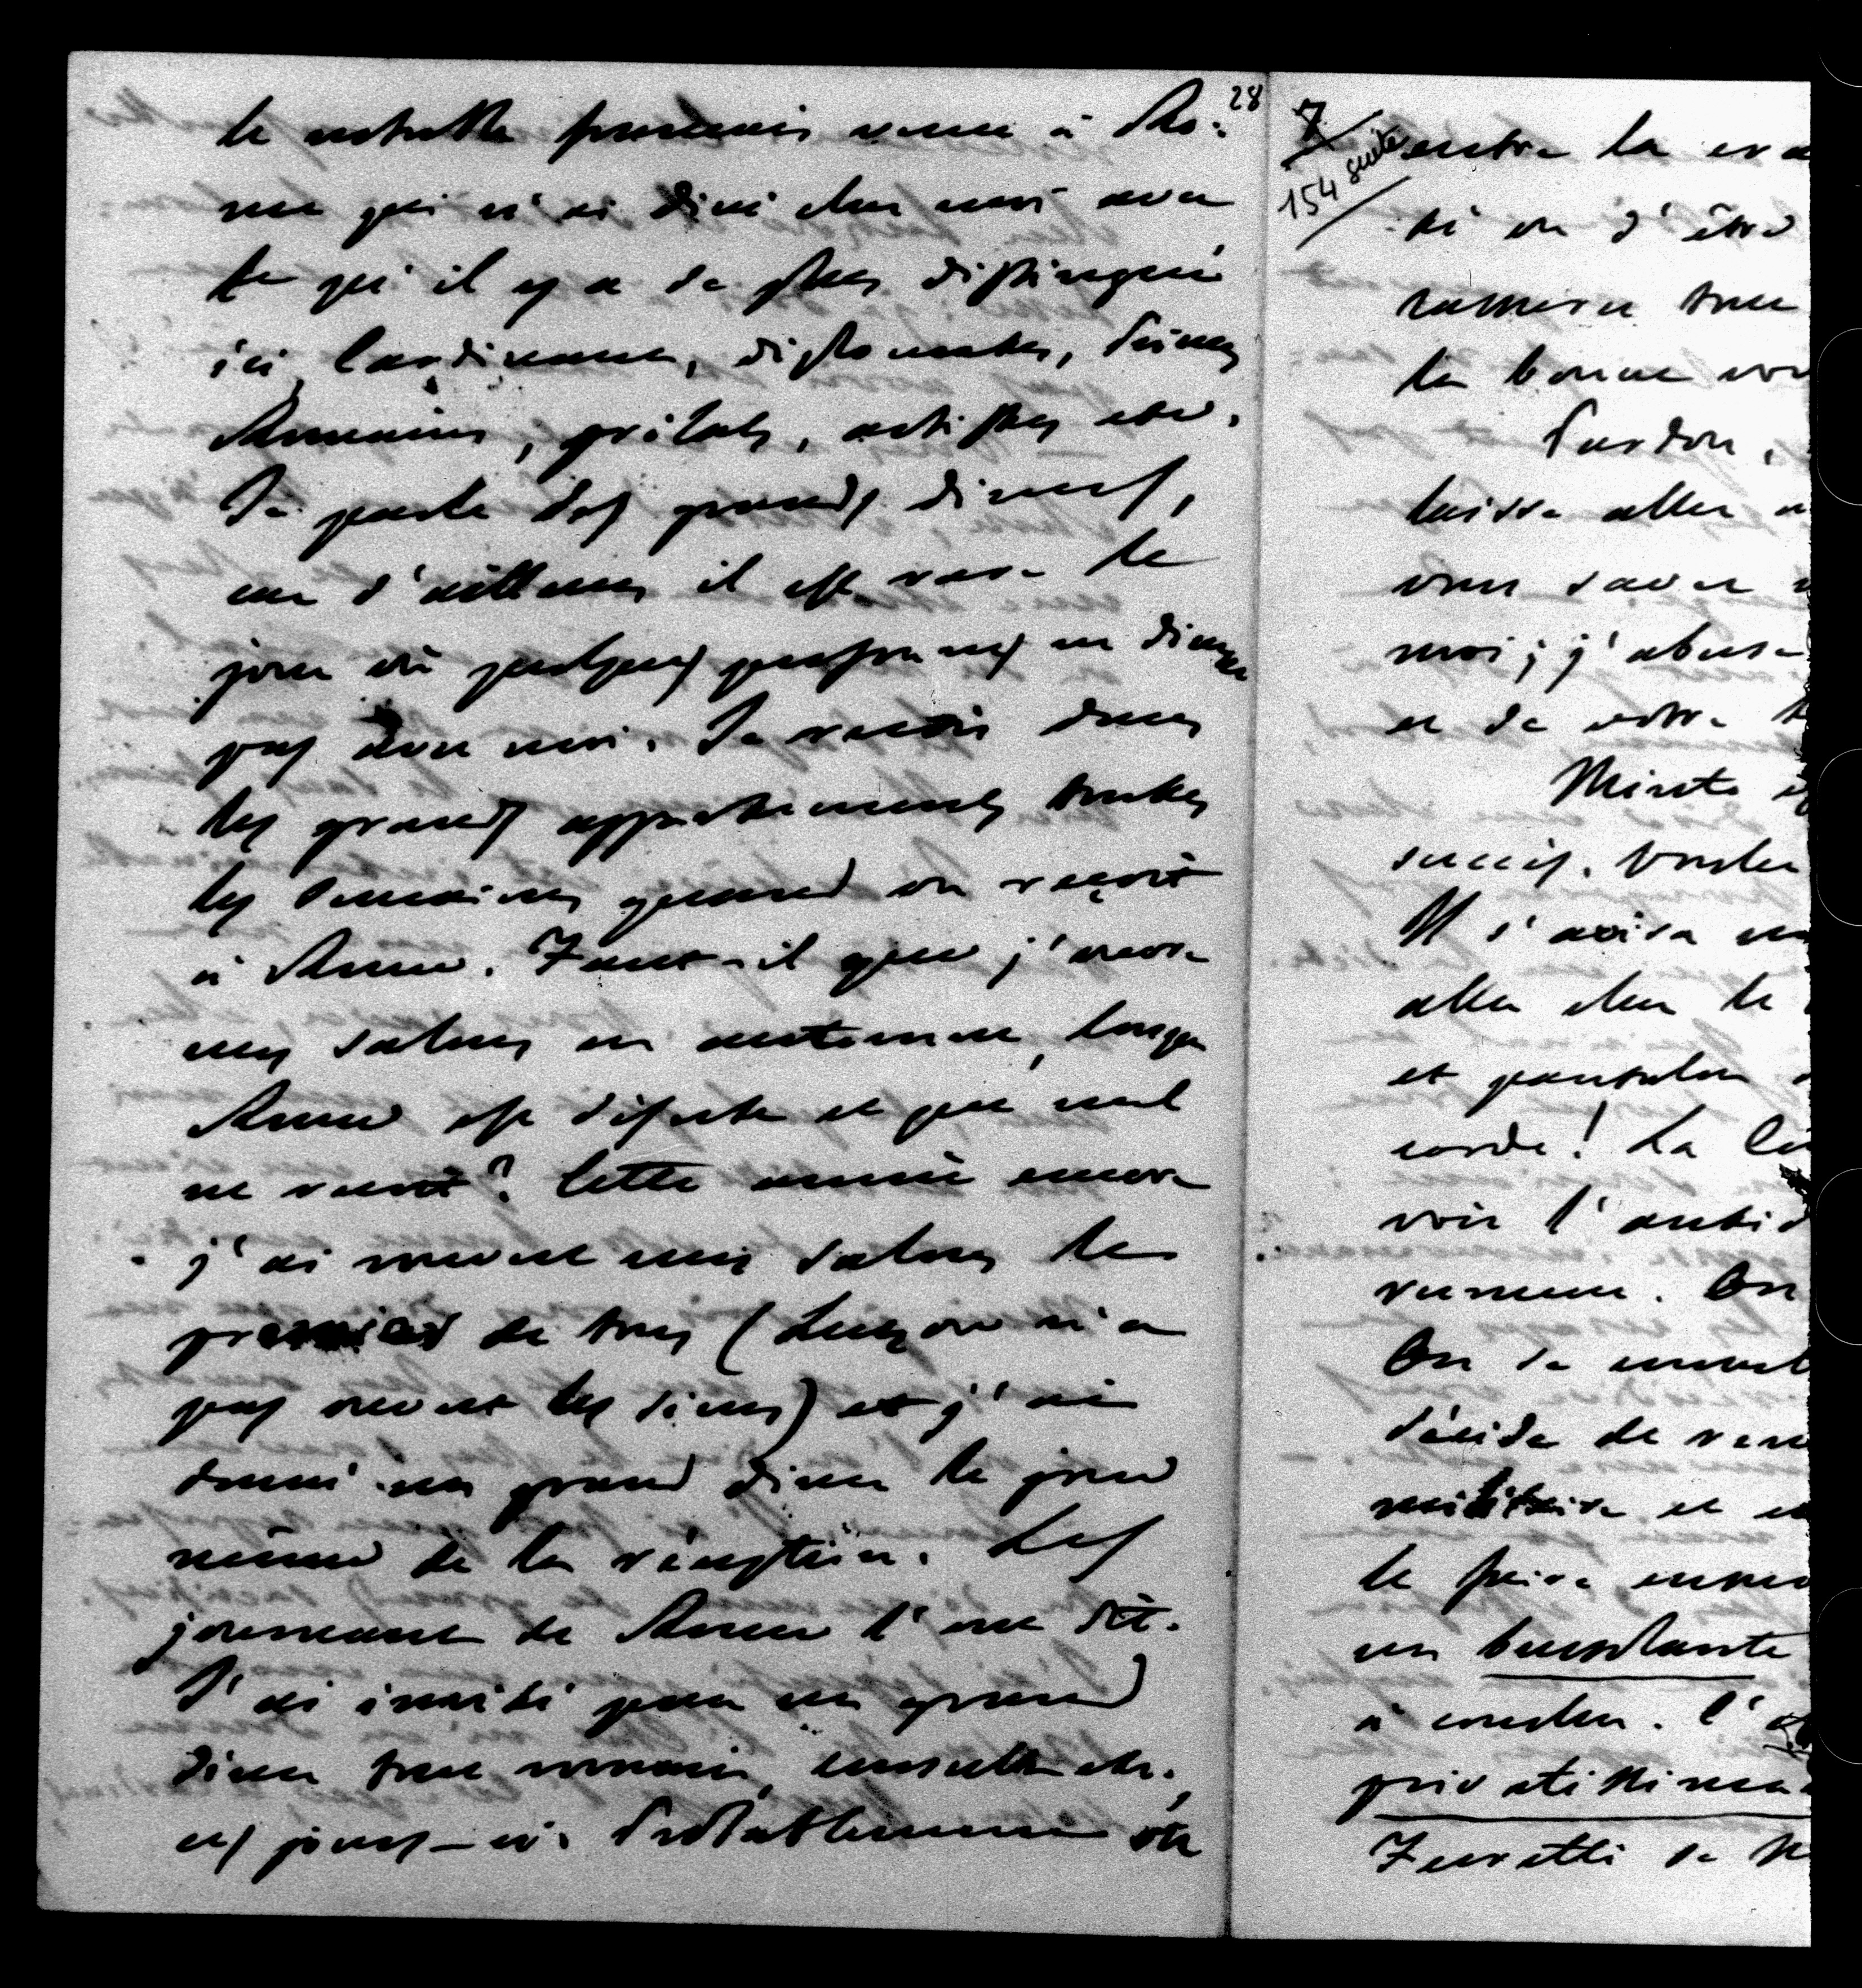 28
le notable français venu à Ro-
me qui n'ai diné chez moi avec
ce qu'il y a de plus distingué
ici, Cardinaux, diplomates, Princes
Romains, prélats, artistes etc.
Je parle des grands diners,
car d'ailleurs il est rare le
jour où quelques personnes ne dinent
pas avec moi. Je reçois dans
les grands appartements toutes
les semaines quand on reçoit
à Rome. Faut-il que j'ouvre
mes salons en automne, lorsque
Rome est déserte et que nul
ne vient? Cette année encore
j'ai rouvert mes salons le
premier de tous (Lutzow n'a
pas ouvert les siens) et j'ai
donné un grand diner le jour
même de la réception. Les
journaux de Rome l'ont dit.
J'ai invité pour un grand
diner tous consuls etc.,
ces jours-ci. Probablement on
7
154 suite
outre la
té on d'être
ramener tout
la bonne
Pardon,
laisse aller
vous savez
moi; j'abuse
et de votre
Minto
succès. Vouler
Il s'avisa
aller chez le
et pantalon
corde! La
voir l'anti
rumeur. On
On se
décida de
militaire et
le faire
un buzzolante
à coucher. L'
privatissima
Zuretti se